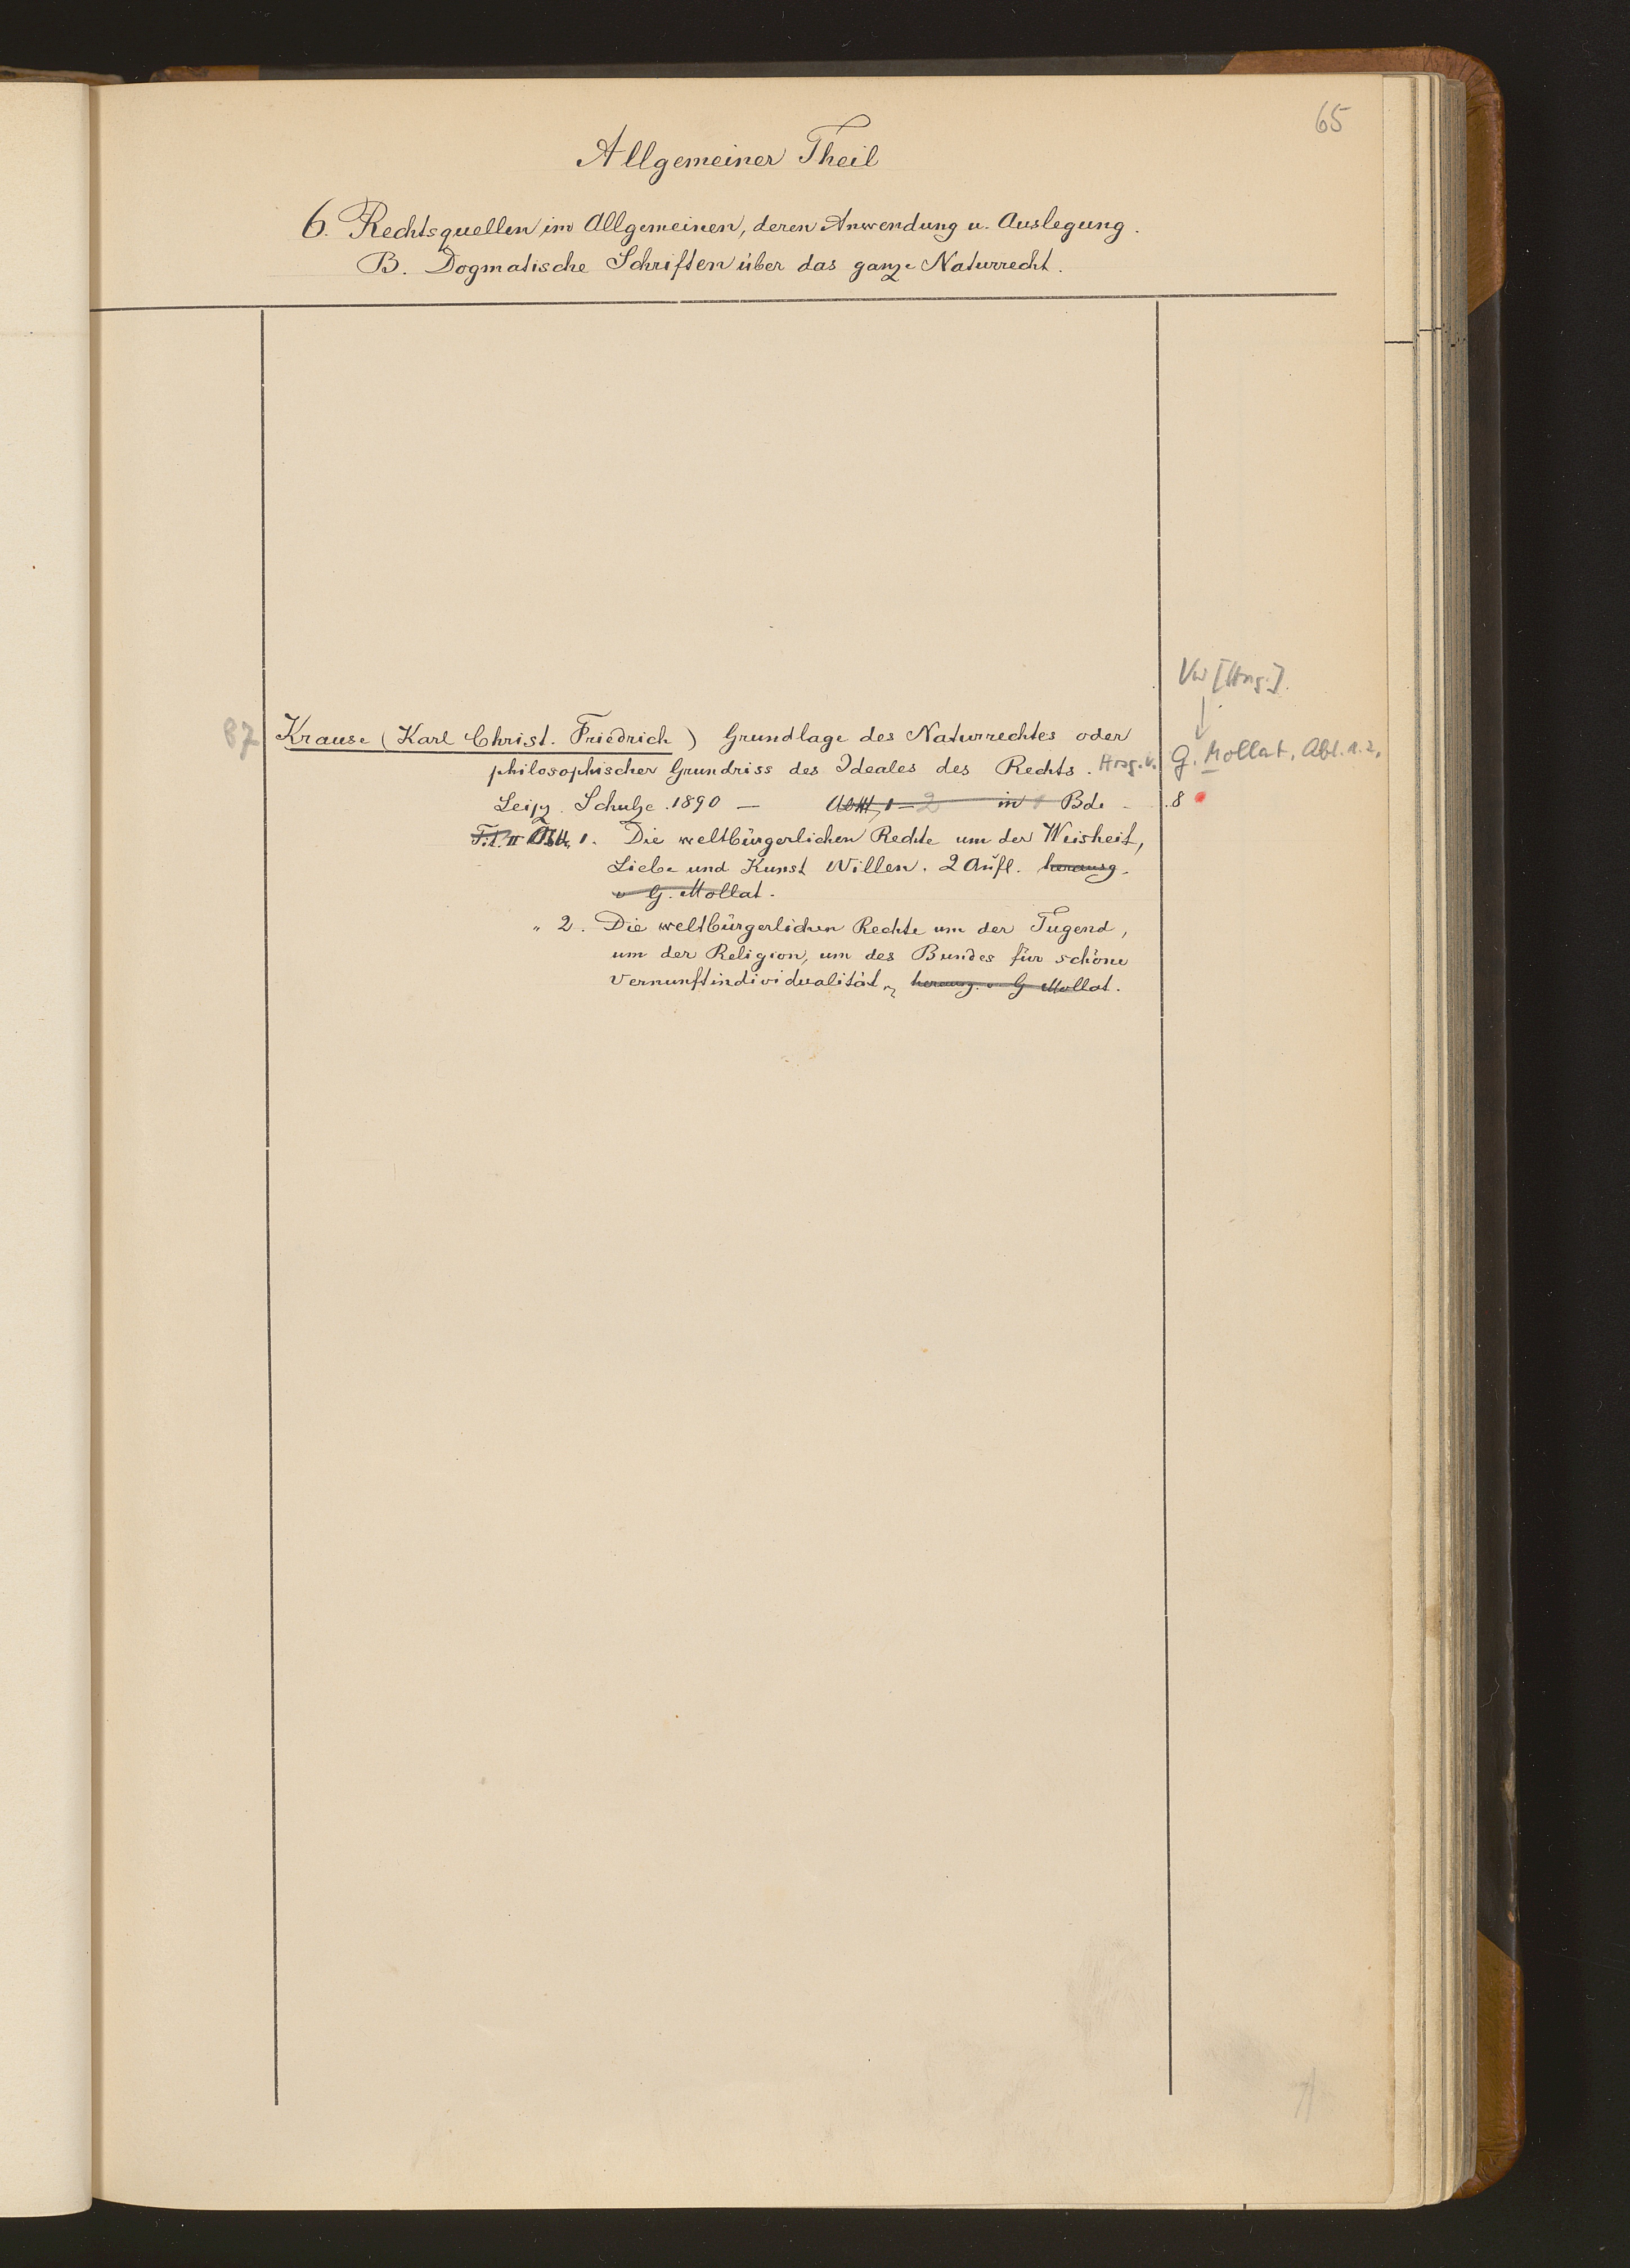 65
Allgemeiner Theil
6. Rechtsquellen im Allgemeinen, deren Anwendung u. Auslegung.
B. Dogmatische Schriften über das ganze Naturrecht.
Vw [Hrsg.]
87 Krause (Karl Christ. Friedrich) Grundlage des Naturrechtes oder
philosophischer Grundriss des Ideales des Rechts. Hrsg. v. G. Mollat. Abt. 1. 2.
Leipz. Schulze. 1890 — Abth. 1 – 2 in 1 Bde – 8
Abth. 1. Die weltbürgerlichen Rechte um der Weisheit,
Liebe und Kunst Willen. 2 Aufl. herausg.
v G. Mollat.
" 2. Die weltbürgerlichen Rechte um der Tugend,
um der Religion, um des Bundes für schöne
Vernunftindividualität, herausg. v G Mollat.